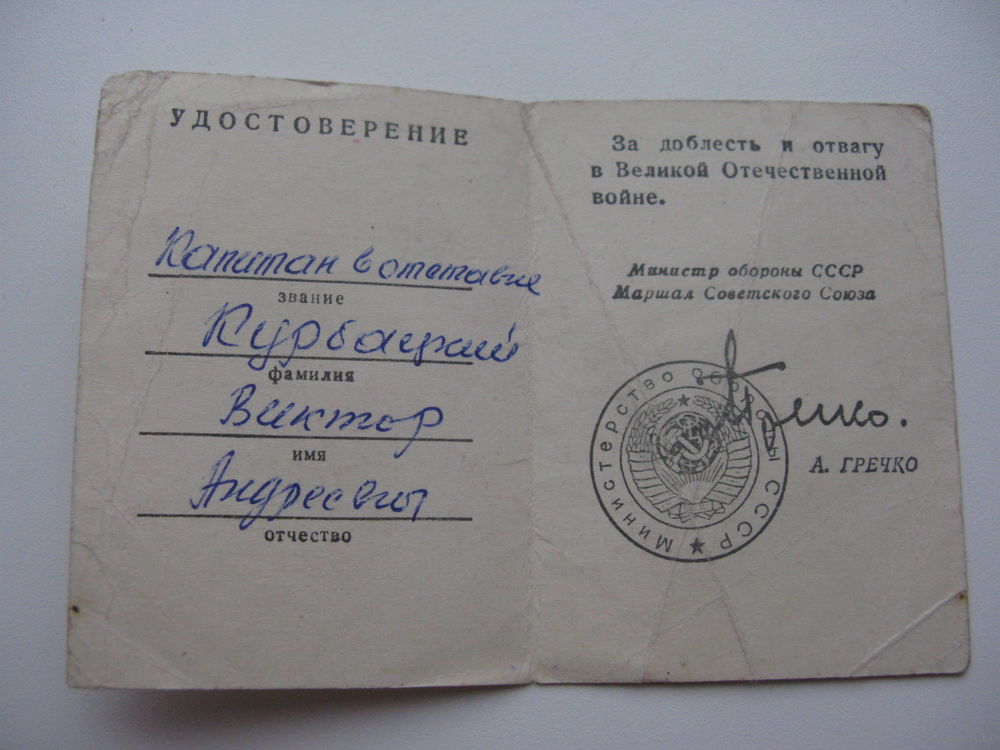 УДОСТОВЕРЕНИЕ
Капитан в отставке
звание
Курбацкий
фамилия
Виктор
имя
Андреевич
отчество
За доблесть и отвагу
в Великой Отечественной
войне.
Министр обороны СССР
Маршал Советского Союза
Гречко.
А. ГРЕЧКО
Министерство Обороны СССР